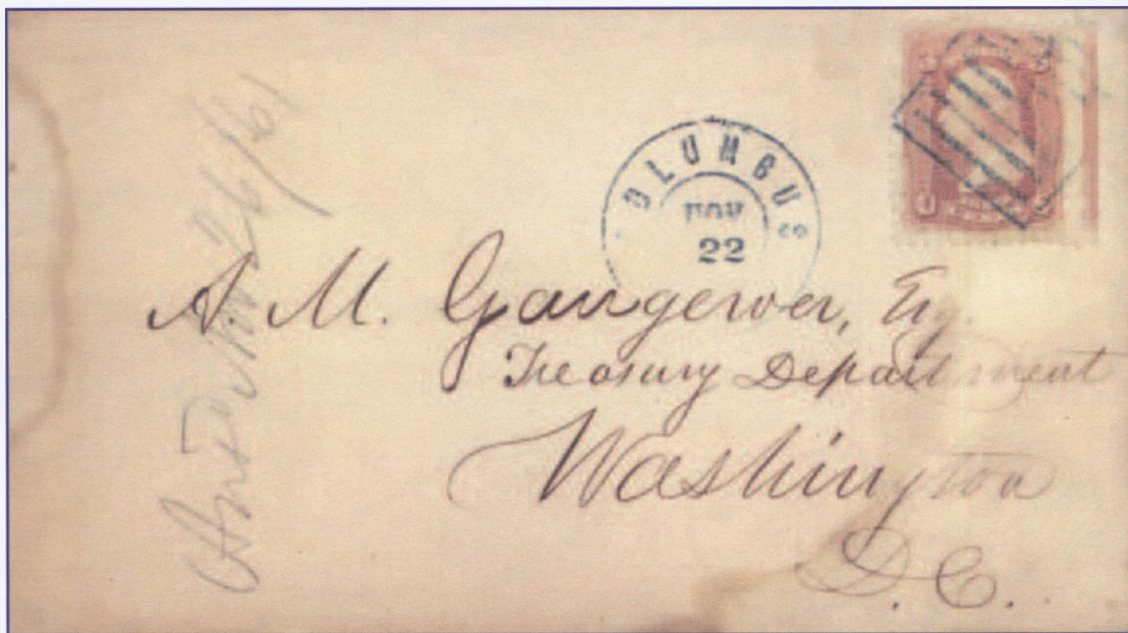 OLUMBUS
NOV
22
A. M. Gangewer, Esq.
Treasury Department
Washington
D.C.
Nov 26/61